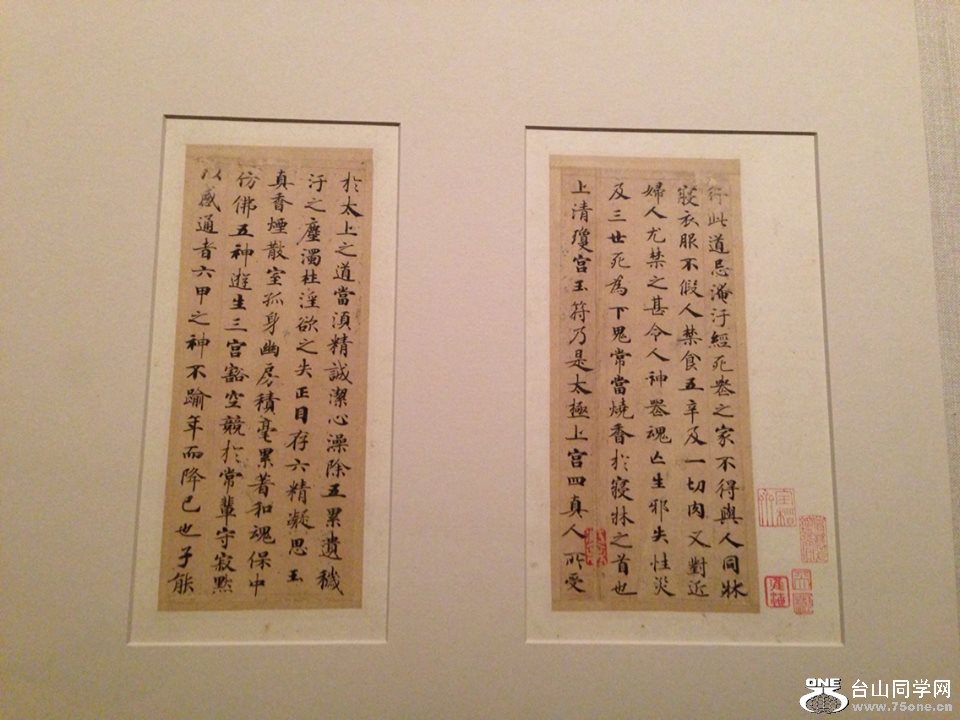 行此道忌淹汙經死喪之家不得與人同牀
寢衣服不假人禁食五辛及一切肉又對近
婦人尤禁之甚令人神喪魂亡生邪失性災
及三世死為下鬼常當燒香於寢牀之首也
上清瓊宮玉符乃是太極上宮四真人所受
於太上之道當須精誠潔心澡除五累遺穢
汙之塵濁杜淫欲之失正目存六精凝思玉
真香煙散室孤身幽房積毫累著和魂保中
仿佛五神遊生三宮豁空競於常輩守寂默
以感通者六甲之神不踰年而降已也子能
ONE 台山同学网
www.75one.cn